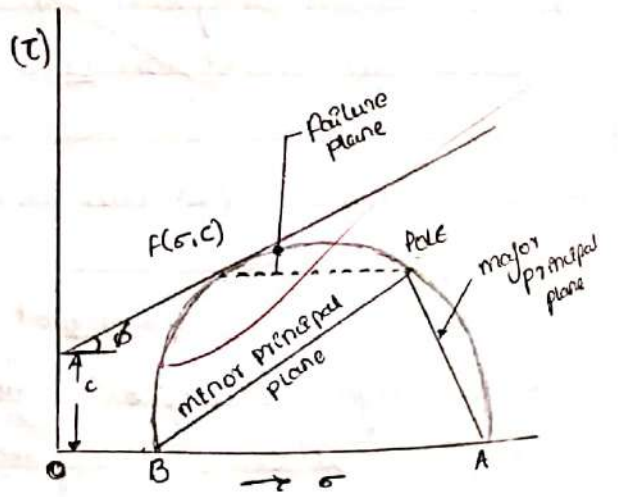 (τ)
failure
plane
F(σ, c)
POLE
major
principal
plane
A
ϕ
c
minor principal
plane
O
B
→ σ
A